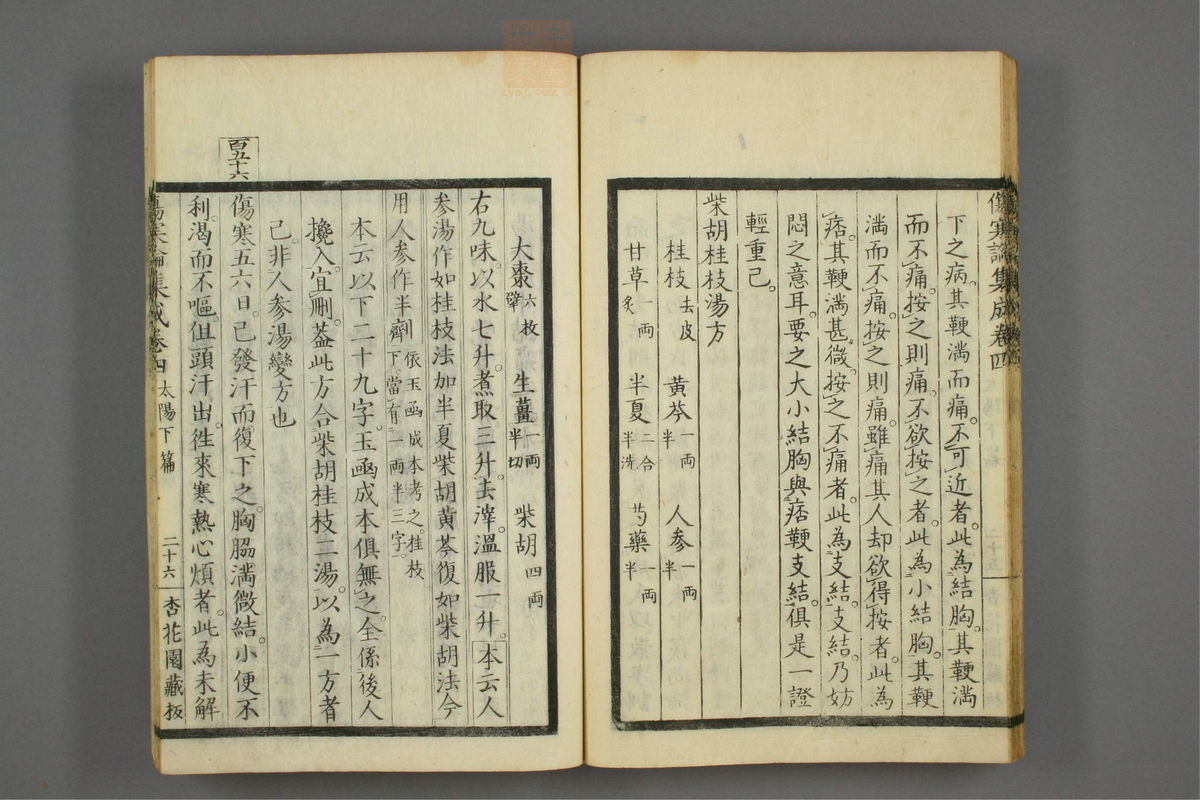 傷寒論集成卷四
下之病。其鞕滿而痛。不可近者。此為結胸。其鞕滿
而不痛。按之則痛。不欲按之者。此為小結胸。其鞕
滿而不痛。按之則痛。雖痛其人却欲得按者。此為
痞。其鞕滿甚微。按之不痛者。此為支結。支結乃妨
悶之意耳。要之大小結胸與痞鞕支結。俱是一證
輕重已。
柴胡桂枝湯方
桂枝去皮 黃芩一兩半 人參一兩半
甘草一兩炙 半夏二合半洗 芍藥一兩半
大棗六枚擘 生薑一兩半切 柴胡四兩
右九味。以水七升。煮取三升。去滓。溫服一升。本云人
參湯作如桂枝法加半夏柴胡黃芩復如柴胡法今
用人參作半劑依玉函成本考之。桂枝下。當有一兩半三字。
本云以下二十九字。玉函成本俱無之。全係後人
攙入。宜刪。蓋此方合柴胡桂枝二湯。以為一方者
已。非人參湯變方也
百五十六
傷寒五六日。已發汗而復下之。胸脇滿微結。小便不
利。渴而不嘔。但頭汗出。徃來寒熱心煩者。此為未解
傷寒論集成卷四 太陽下篇 二十六 杏花園藏板